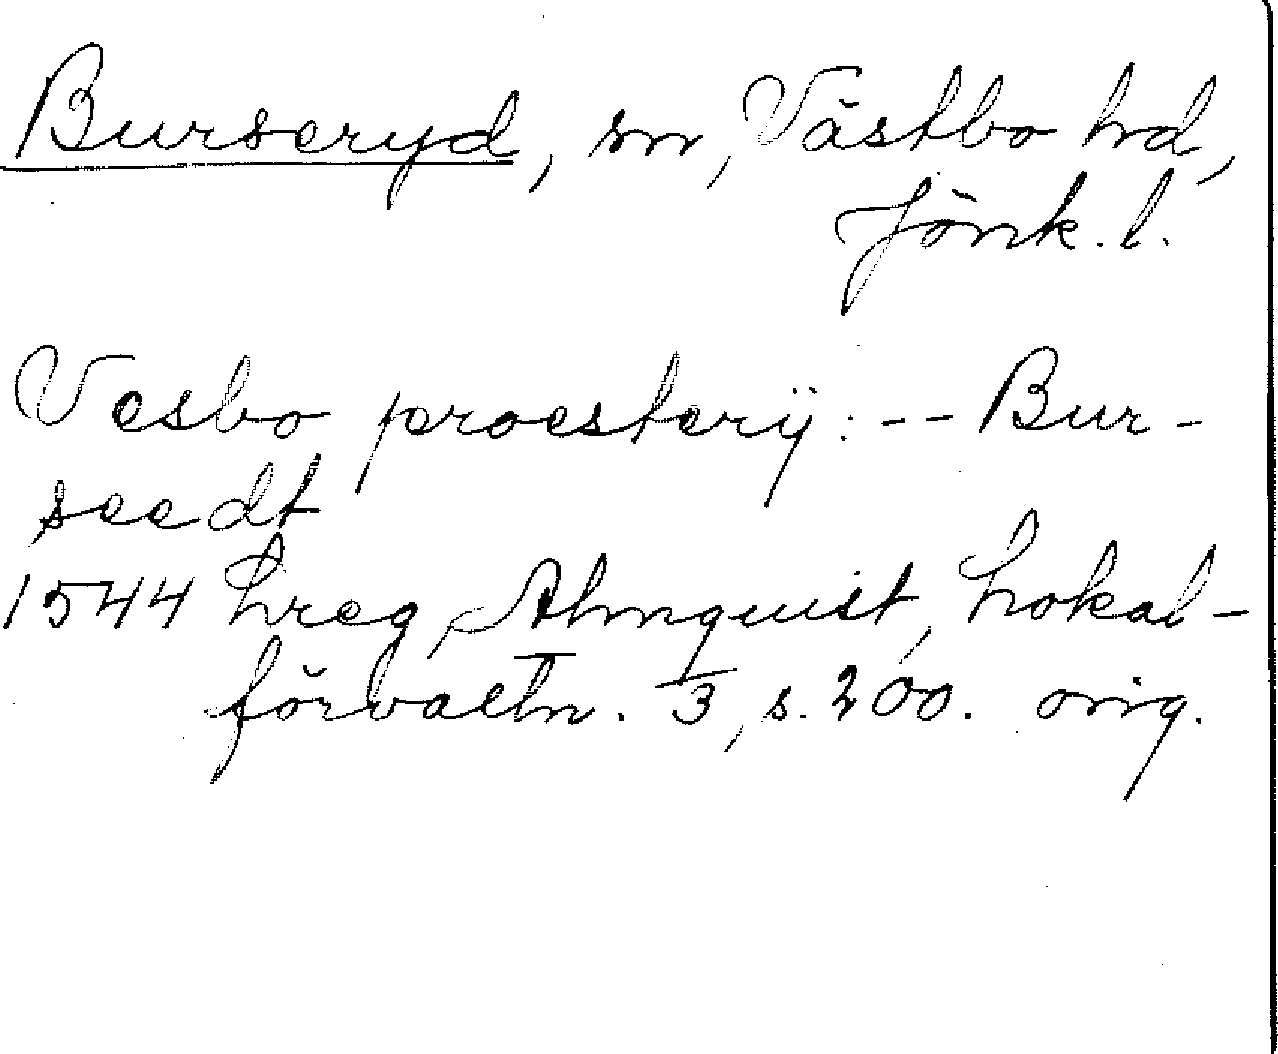 Burseryd, sn, Västbo hd,
Jönk. l.
Vesbo proesterij: -- Bur-
seedt
1544 Lreg, Almquist, Lokal-
förvaltn. 3, s. 200. orig.